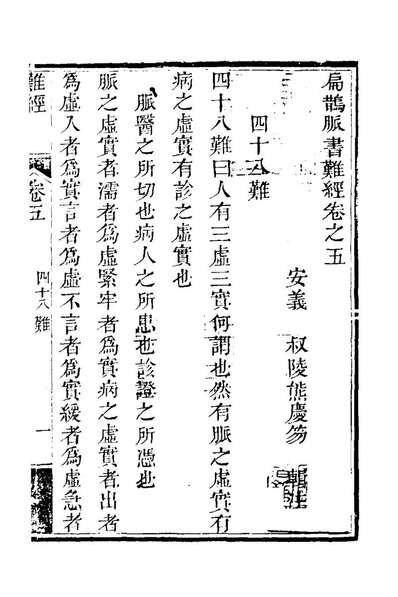 扁鵲脈書難經卷之五
安義 叔陵熊慶笏
四十八難
四十八難曰人有三虛三實何謂也然有脈之虛實有
病之虛實有診之虛實也
脈醫之所切也病人之所患也診證之所憑也
脈之虛實者濡者爲虛緊牢者爲實病之虛實者出者
爲虛入者爲實言者爲虛不言者爲實緩者爲虛急者
難經
卷五
四十八難
一